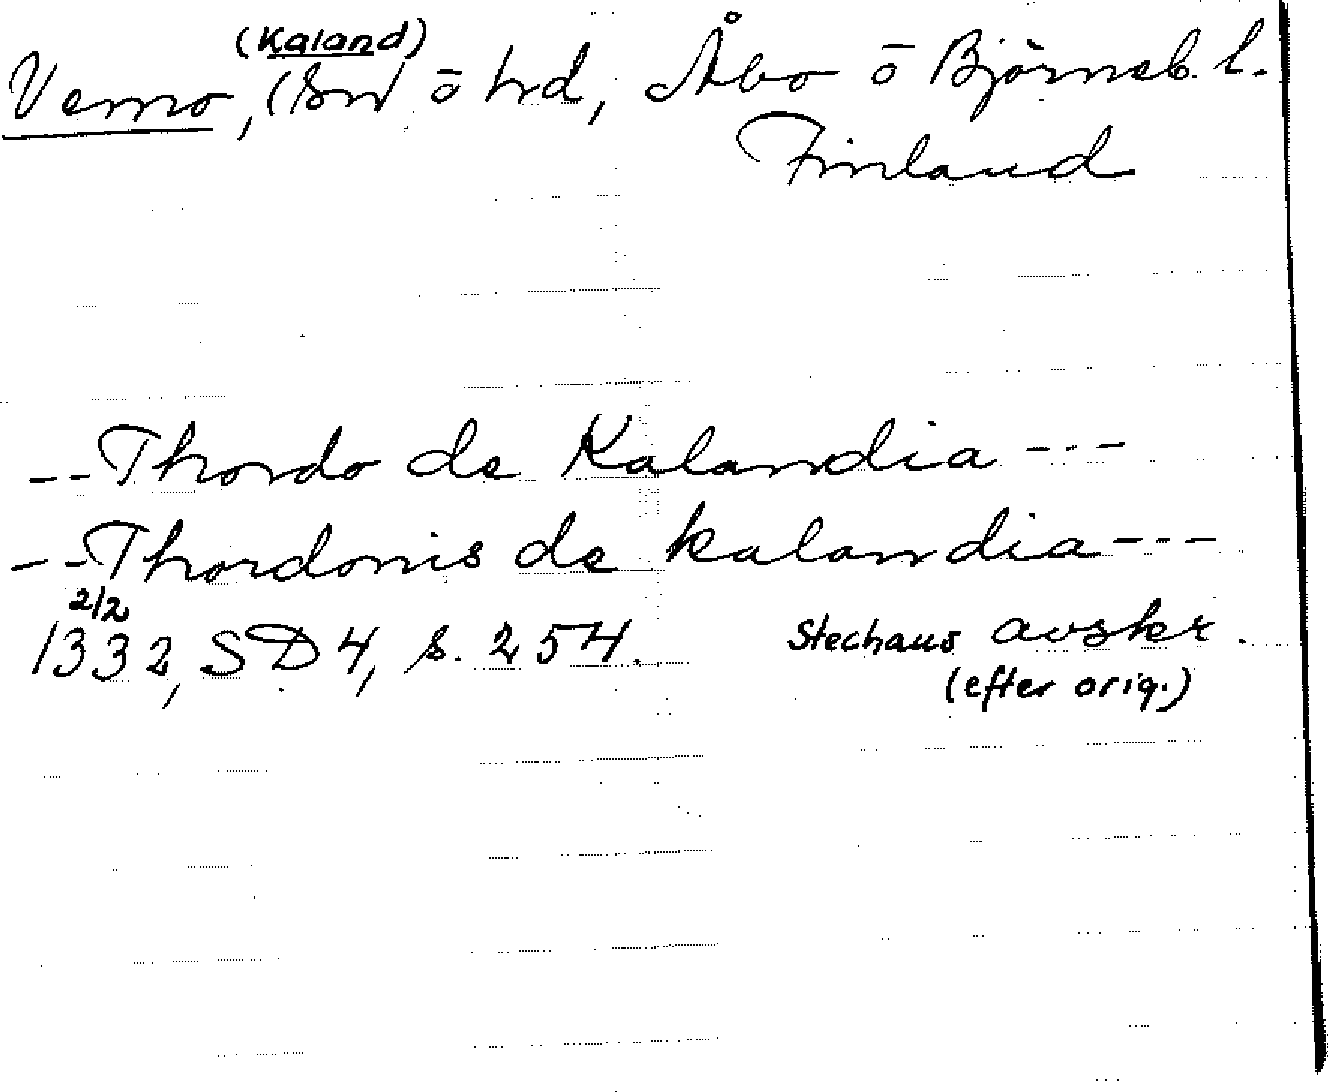 (Kaland)
Vemo, (sn ō hd, Åbo ō Björneb. l.
Finland
--Thordo de Kalandia---
--Thordonis de kalandia---
2/2
1332, SD4, s. 254. Stechaus avskr.
(efter orig.)